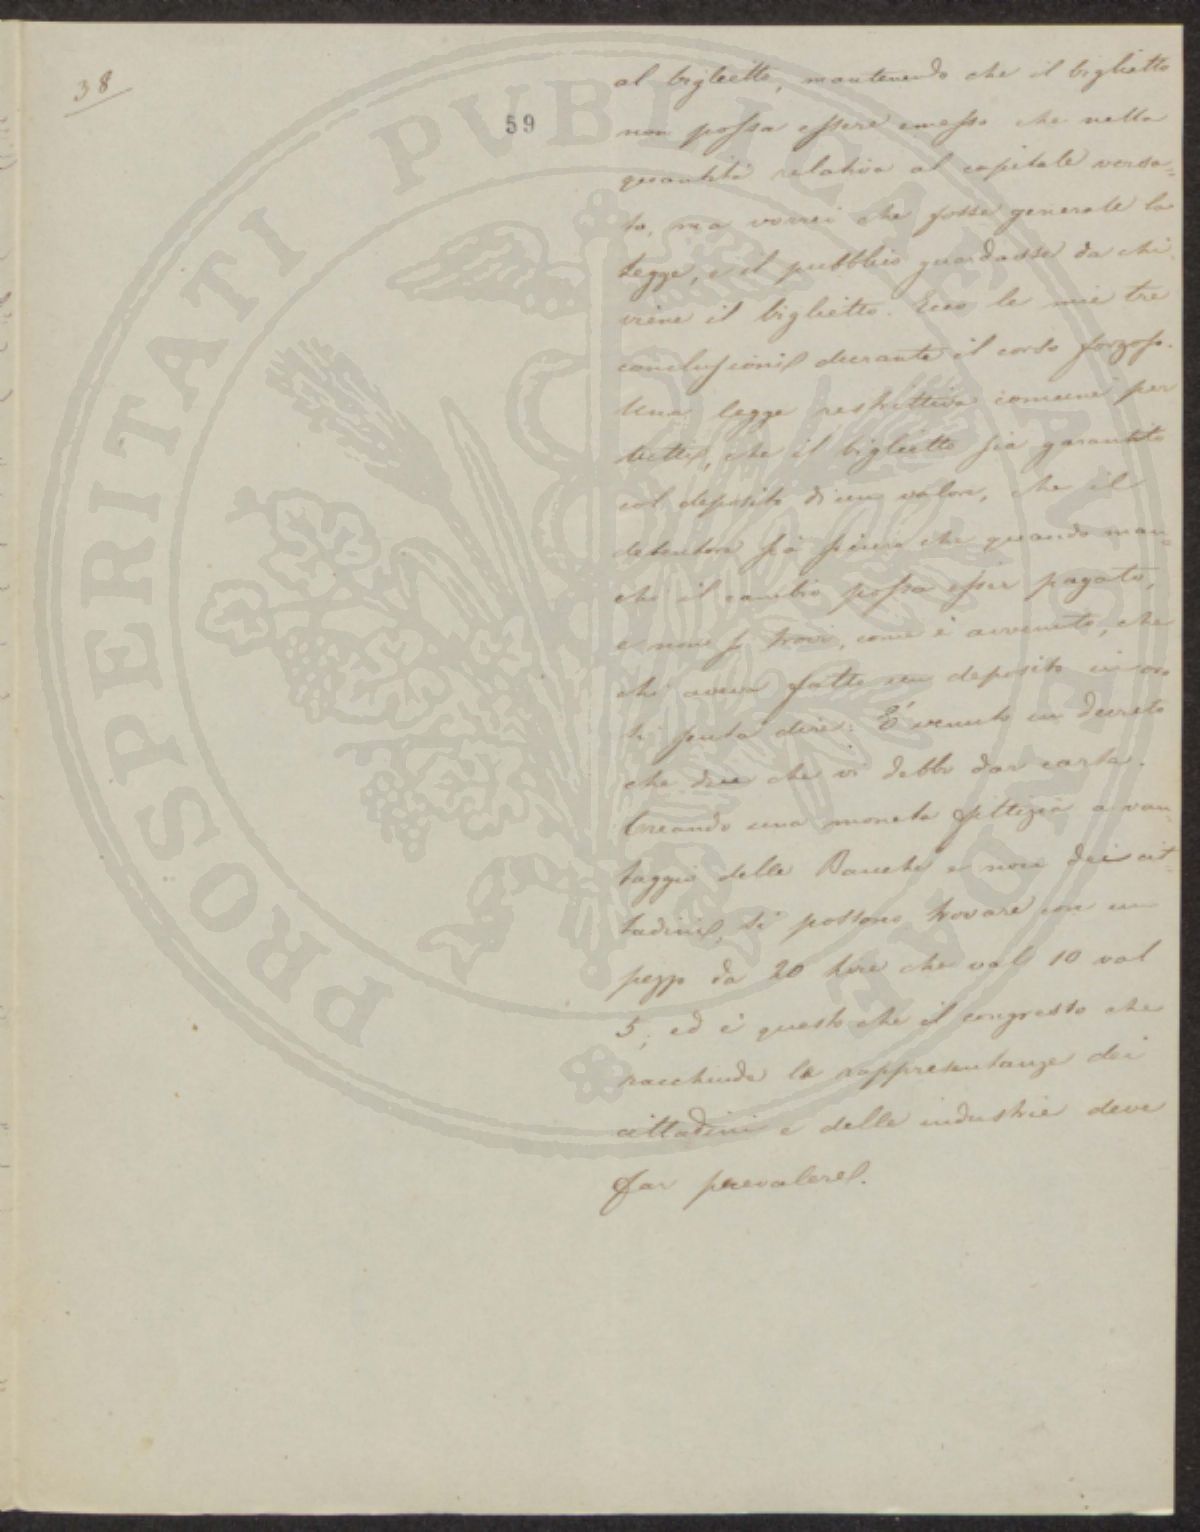 38
59
al biglietto, mantenendo che il biglietto
non possa essere emesso che nella
quantità relativa al capitale versa=
to, ma vorrei che fosse generale la
legge, e il pubblico guardasse da chi
viene il biglietto. Ecco le mie tre
conclusioni durante il corso forzoso.
Una legge restrittiva comune per
tutti, che il biglietto sia garantito
col deposito di un valore, che il
detentore sia sicuro che quando man=
chi il cambio possa esser pagato,
e non si trovi, come è avvenuto, che
chi aveva fatto un deposito in oro
si senta dire: È venuto un decreto
che dice che vi debbo dar carta.
Creando una moneta fittizia a van=
taggio delle Banche e non dei cit=
tadini, si possono trovare con un
pezzo da 20 lire che val 10 val
5; ed è questo che il congresso che
racchiude le rappresentanze dei
cittadini e delle industrie deve
far prevalere.
PROSPERITATI PVBLICAE AVGENDAE